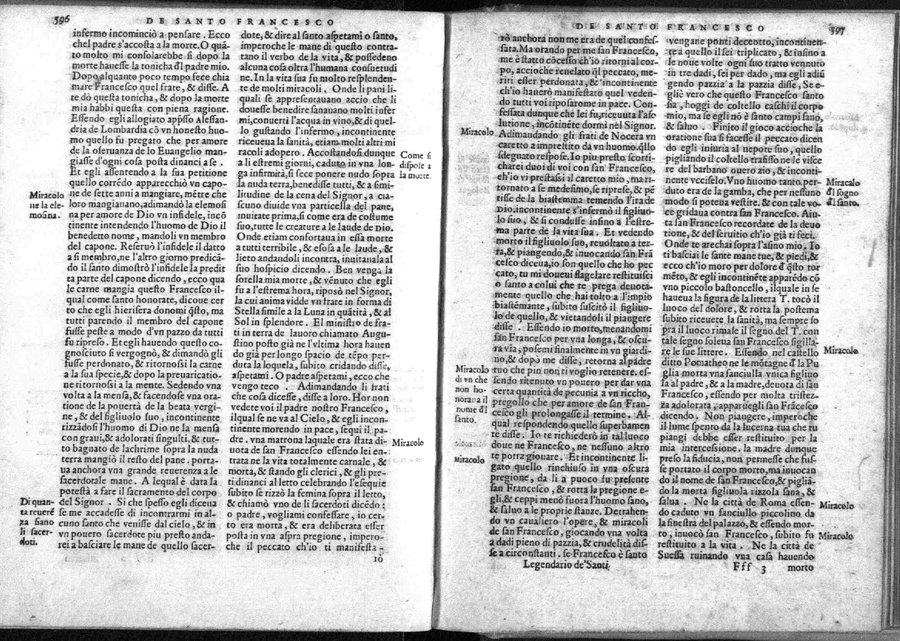 596
DE SANTO FRANCESCO
infermo incominciò a pensare. Ecco
chel padre s'accosta a la morte. O quã
to molto mi consolarebbe si dopo la
morte hauesse la tonicha dl padre mio.
Dopo alquanto poco tempo fece chia
mare Francesco quel frate, & disse. A
te dò questa tonicha, & dopo la morte
mia habbi questa con piena ragione.
Essendo egli alloggiato appsso Alessan-
dria de Lombardia cõ vn honesto huo
mo quello fu pregato che per amore
de la osseruanza de lo Euangelio man-
giasse d'ogni cosa posta dinanci a se.
Et egli assentendo a la sua petitione
quello corrédo apparecchiò vn capo-
ne de sette anni a mangiare, mêtre che
loro mangiauano, adimandò la elemosi
na per amore de Dio vn infidele, incõ
tinente intendendo l'huomo de Dio il
benedetto nome, mandoli vn membro
del capone. Reseruò l'infidele il dato
a si membro, ne l'altro giorno predicã-
do il santo dimostrò l'infidele la predit
ta parte del capone dicendo, ecco qua
le carne mangia questo Francesco il-
qual come santo honorate, dicoue cer
to che egli hiersera donomi q̃sto, ma
tutti parendo il membro del capone
fusse peste a modo d'vn pazzo da tutti
fu ripreso. Et egli hauendo questo co-
gnosciuto si vergognò, & dimandò gli
fusse perdonato, & ritornossi la carne
a la sua specie, & dopo la preuaricatio-
ne ritornossi a la mente. Sedendo vna
volta a la mensa, & facendose vna ora-
tione de la pouerta de la beata vergi-
ne, & del figliuolo suo, incontinente
rizzãdosi l'huomo di Dio ne la mensa
con graui, & adolorati singulti, & tut-
to bagnato de lachrime sopra la nuda
terra mangiò il resto del pane. porta-
ua anchora vna grande reuerenza a le
sacerdotale mane. A lequal è data la
potestà a fare il sacramento del corpo
del Signor. Si che spesso egli diceua
se me accadesse di incontrarmi in al-
cuno santo che venisse dal cielo, & in
vn pouero sacerdote piu presto anda-
rei a basciare le mane de quello sacer-
Miracolo
ne la ele-
mosina.
Di quan-
ta reuerẽ
za siano
li sacer-
doti.
dote, & dire al santo aspetami o santo,
imperoche le mane di questo contra-
tano il verbo de la vita, & possedeno
alcuna cosa oltra l'humana consuetudi
ne. In la vita sua fu molto resplenden-
te de molti miracoli. Onde li pani li-
quali se appresentauano accio che li
douesse benedire sanauano molti infer
mi, conuertì l'acqua in vino, & di quel-
lo gustando l'infermo, incontinente
riceueua la sanità, etiam molti altri mi
racoli adopero. Accostandosi dunque
a li estremi giorni, caduto in vna lon-
ga infirmità, si fece ponere nudo sopra
la nuda terra, benedisse tutti, & a simi-
litudine de la cena del Signor, a cia-
scuno diuide vna particella del pane,
inuitate prima, si come era de costume
suo, tutte le creature a le laude de Dio.
Onde etiam confortaua in essa morte
a tutti terribile, & esosa a le laude, &
lieto andandoli incontra, inuitauala al
suo hospicio dicendo. Ben venga la
sorella mia morte, & venuto che egli
fu a l'estrema hora, riposò nel Signor,
la cui anima vidde vn frate in forma di
Stella simile a la Luna in quãtità, & al
Sol in splendore. El ministro de fra-
ti in terra de lauoro chiamato Augu-
stino posto già ne l'vltima hora hauen
do già per longo spacio de têpo per-
duta la loquela, subito cridando disse,
aspetami. O padre aspetami, ecco che
vengo teco. Adimandando li frati
che cosa dicesse, disse a loro. Hor non
vedete voi il padre nostro Francesco,
ilqual se ne va al Cielo, & egli incon-
tinente morendo in pace, seguì il pa-
dre. vna matrona laquale era stata di-
uota de san Francesco essendo lei en-
trata ne la vita totalmente carnale, &
morta, & stando gli clerici, & gli pre-
ti dinanci al letto celebrando l'essequie
subito se rizzò la femina sopra il letto,
& chiamò vno de li sacerdoti dicẽdo:
o padre, vogliomi confessare, io cer-
to era morta, & era deliberata esser
posta in vna aspra pregione, impero-
che il peccato ch'io ti manifesta-
10
Come si
dispose a
la morte.
Miracolo
DE SANTO FRANCESCO
597
rò anchora non me era de quel confes-
sata. Ma orando per me san Francesco,
me è stato cõcesso ch'io ritorni al cor-
po, accioche renelato q̃l peccato, me-
riti esser perdonata, & incontinente
ch'io hanerò manifestato quel veden-
do tutti voi riposarome in pace. Con-
fessata dunque che lei fu, riceuuta l'aso
lutione, incõtinẽte dormì nel Signor.
Adimandando gli frati de Nocera vn
caretto a imprestito da vn huomo, q̃llo
sdegnato respose. Io piu presto scorti-
cherei duoi di voi con san Francesco,
ch'io vi prestassi al caretto mio, ma ri-
tornato a se medesimo, se riprese, & pẽ
tisse de la biastemma temendo l'ira de
Dio, incontinente s'infermò il figliuo
lo suo, & si condusse infino a l'estrema
parte de la vita sua. Et vedendo
morto il figliuolo suo, reuoltato a ter-
ra, & piangendo, & inuocando san Frã
cesco diceua, io son quello che ho pec
cato, tu mi doueui flagelare restituisci
o santo a colui che te prega deuota-
mente quello che hai tolto a l'impio
biastẽmante, subito suscitò il figliuo-
lo de quello, & vietandoli il piangere
disse. Essendo io morto, menandomi
san Francesco per vna longa, & oscu-
ra via, posemi finalmente in vn giardi-
no, & dopo me disse, retorna al padre
tuo che piu non ti voglio retenere. es-
sendo ritenuto vn pouero per dar vna
certa quantità de pecunia a vn riccho,
pregollo che per amore de san Fran-
cesco gli prolongasse il termine. Al-
qual respondendo quello superbamen
te disse. Io te richiederò in tal luoco
doue ne Francesco, ne nessuno altro
te porra giouare. Et incontinente li-
gato quello rinchiuso in vna oscura
pregione, da li a puoco fu presente
san Francesco, & rotta la pregione e-
gli, & ceppi menò fuora l'huomo sano,
& saluo a le proprie stanze. Detrahen-
do vn caualiero l'opere, & miracoli
de san Francesco, giocando vna volta
a dadi pieno di pazzia, & crudelità dis-
se a circonstanti, se Francesco è santo
Legendario de'Santi.
Miracolo
Miracolo
di vn che
non ho-
noraua il
nome dl
santo.
Miracolo
vengane ponti deceotto, incontinen-
te a quello il sei triplicato, & insino a
le noue volte ogni suo tratto vennuto
in tre dadi, sei per dado, ma egli adiũ
gendo pazzia a la pazzia disse, Se e-
gliè vero che questo Francesco santo
sia, hoggi de coltello caschi il corpo
mio, ma se egli nõ è santo campi sano,
& saluo. Finito il gioco acciòche la
oratione sua si facesse il peccato dicen
do egli iniuria al nepote suo, quello
pigliando il coltello trafisso ne le visce
re del barbano ouero zio, & incontinente
vccise lo. Vno huomo tanto, per-
duto era de la gamba, che per nessuno
modo si poteua vestire, & con tale vo-
ce gridaua contra san Francesco. Aiu-
ta san Francesco recordate de la deuo
tione, & del seruitio ch'io già ti feci.
Onde te arechai sopra l'asino mio. Io
ti basciai le sante mane tue, & piedi, &
ecco ch'io moro per dolore d'q̃sto tor
mẽto, & egli incontinẽte apparẽdo cõ
vno piccolo bastoncello, ilquale in se
haueua la figura de la littera T. toccò il
luoco del dolore, & rotta la postema
subito riceuete la sanità, ma sempre so
pra il luoco rimase il segno del T. con
tale segno soleua san Francesco sigilla-
re le sue littere. Essendo nel castello
ditto Pomatheo ne le mõtagne d'la Pu
glia morta vna fanciulla vnica figliuo
la al padre, & a la madre, deuota di san
Francesco, essendo per molta tristez-
za adolorata, apparuegli san Frãcesco
dicendo. Non piangere, imperoche
il lume spento da la lucerna tua che tu
piangi debbe esser restituito per la
mia intercessione. la madre dunque
preso la fiducia, non permesse che fus-
se portato il corpo morto, ma inuocan
do il nome de san Francesco, & pigliã-
do la morta figliuola rizzola sana, &
salua. Ne la città de Roma essen-
do caduto vn fanciullo piccolino da
la finestra del palazzo, & essendo mor-
to, inuocò san Francesco, subito fu
restituito a la vita. Ne la città de
Suessa ruinando vna casa hauendo
Fff 3 morto
Miracolo
d'l sogno
d'l santo.
Miracolo
Miracolo
Miracolo